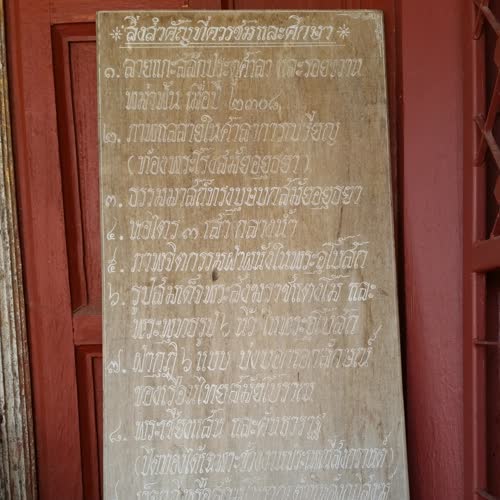 * สิ่งสำคัญที่ควรชมและศึกษา *
๑. ลายแกะสลักประตูศาลา และรอยขวาน
พม่าฟัน เมื่อปี ๒๓๐๙
๒. ภาพสลายในศาลาการเปรียญ
(ท้องพระโรงสมัยอยุธยา)
๓. ธรรมมาสน์ทรงบุษบกสมัยอยุธยา
๔. หอไตร ๓ เสา กลางน้ำ
๕. ภาพจิตรกรรมฝาผนังในพระอุโบสถ
๖. รูปสมเด็จพระสังฆราชแตงโม และ
พระพุทธรูป ๖ นิ้ว ในพระอุโบสถ
๗. ฝากุฏิ ๖ แบบ บ่งบอกเอกลักษณ์
ของเรือนไทยสมัยโบราณ
๘. พระเชียงแสน และคันธารราฐ